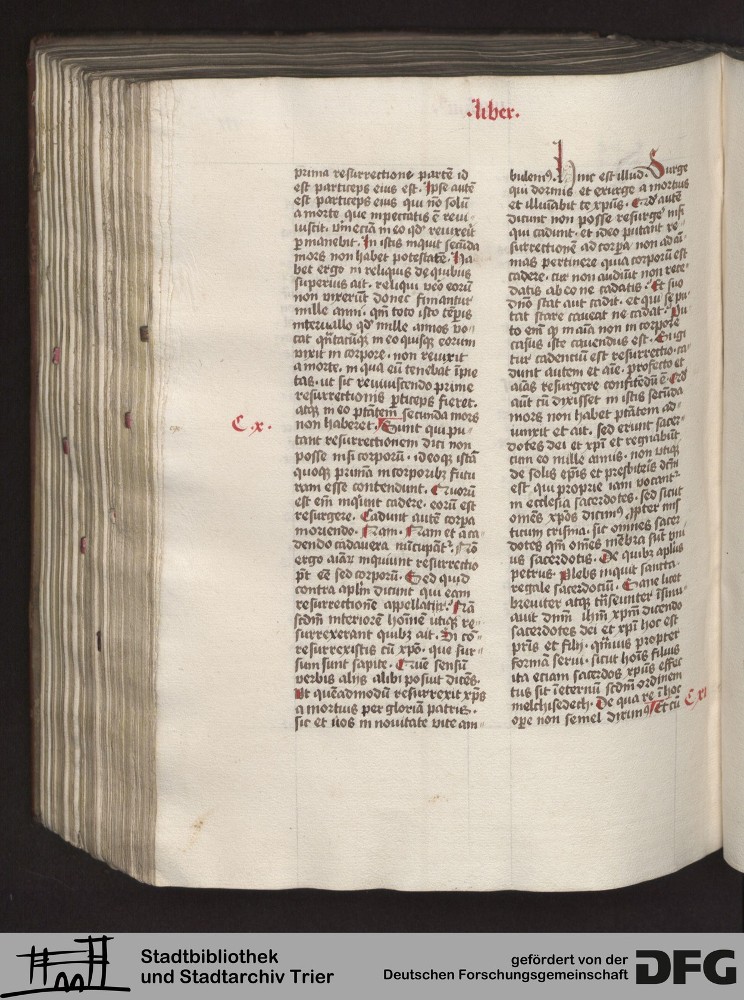 ·liber·
prima resurrectione partē id
est particeps eius est· Ipse autē
est particeps eius qui nō solū
a morte que in peccatis ē revi-
viscit· vm̄ eciā in eo qd' revixerit
permanebit· In istis inquit secūda
mors non habet potestatē· Ha
bet ergo in reliquis de quibus
superius ait· reliqui v̄o eorū
non vixerūt donec finiantur
mille anni· qm̄ toto isto tēpis
intervallo qd' mille annos vo-
cat qn̄tacūqꝫ in eo quisqꝫ eorum
vixit in corpore· non revixit
a morte· in qua eū tenebat īpie
tas· ut sic reviviscendo prime
resurrectionis pticeps fieret·
atqꝫ in eo ptātem secunda mors
C·x·
non haberet· Sunt qui pu-
tant resurrectionem dici non
posse nisi corporū· ideoqꝫ istā
quoqꝫ primā in corporibꝫ futu
ram esse contendunt· Quorū
est em̄ inqͥunt cadere· eorū est
resurgere· Cadunt autē corpa
moriendo· Nam· Nam et a ca-
dendo cadavera nūcupāt᷑· Nō
ergo aīarꝫ inquiunt resurrectio
pōt eē sed corporū· Sed quid
contra aplm̄ dicunt qui eam
resurrectionē appellat᷑· Nā
scdm̄ interiorē hoīnē utiqꝫ re-
surrexerant quibꝫ ait· Si cō-
resurrexistis cū xp̄o· que sur-
sum sunt sapite· Quē sensū
verbis alijs alibi posuit dicēs·
Ut quēadmodū resurrexit xp̄s
a mortuis per gloriā patris·
sic et nos in novitate vite am-
bulemꝰ· Hinc est illud· Surge
qui dormis et exurge a mortuis
et illuīabit te xp̄us· Qd' autē
dicunt non posse resurge' nisi
qui cadunt· et ideo putant re-
surrectionē ad corpa non ad aī-
mas pertinere quia corporū est
cadere· cur non audiūt non rece-
datis ab eo ne cadatis· Et suo
dn̄o stat aut cadit· et qui se pu-
tat stare caveat ne cadat· Pu
to em̄ qꝫ in aīa non in corpore
casus iste cavendus est· Si igi
tur cadentiū est resurrectio· ca-
dunt autem et aīe· profecto et
aīas resurgere confitēdū ē· Qd'
aūt cū dixisset in istis secūda
mors non habet ptātem ad-
iunxit et ait· sed erunt sacer-
dotes dei et xpī et regnabūt
cum eo mille annis· non utiqꝫ
de solis ep̄is et presbiteris dc̄m
est qui proprie iam vocant᷑
in ecclesia sacerdotes· sed sicut
omēs xpōs dicimꝰ ꝓpter mis
ticum crisma· sic omnes sacer
dotes qm̄ om̄es mēbra sūt uni-
us sacerdotis· De quibꝫ aplūs
petrus· Plebs inquit sancta·
regale sacerdociū· Sane licet
breviter atqꝫ tn̄seunter īsinu-
avit dn̄m ihm̄ xp̄m dicendo
sacerdotes dei et xpī hoc est
pr̄is et filij· qm̄vis propter
formā servi· sicut hoīs filius
ita etiam sacerdos xp̄us effec
tus sit īeternū scdm̄ ordinem
melchisedech· De qua re ī hoc
ope non semel diximꝰ· Et cū
C xi
Stadtbibliothek
und Stadtarchiv Trier
gefördert von der
Deutschen Forschungsgemeinschaft
DFG